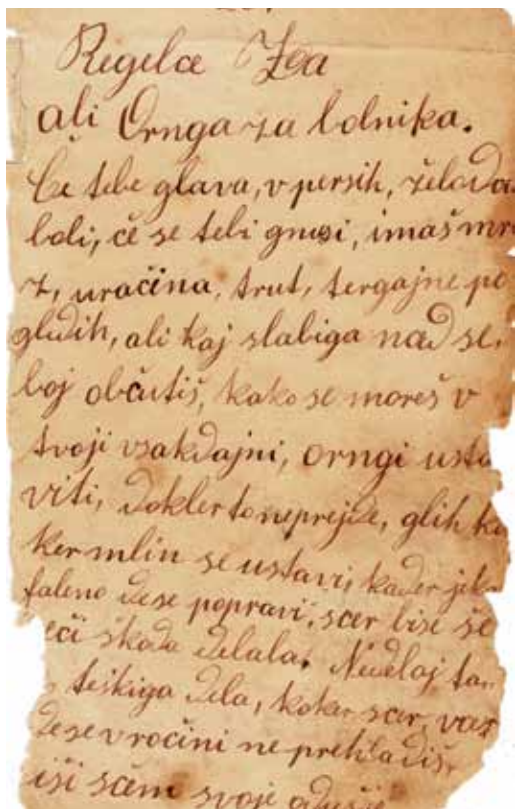 Regelce Za
ali Ornga za bolnika.
Če tebe glava, v persih, želoda
boli, če se tebi gnusi, imaš mra
z, uračina, trut, tergajne po
gludih, ali kaj slabiga nad se,
boj občutiš, kako se moreš v
tvoji vsakdajni, orngi usta
viti, dokler to neprejde, glih ko
ker mlin se ustavi, kader je k
faleno de se popravi, scer bi se še
eči škoda delala. Nedelaj ta
teškiga dela, koker scer,
de se vročini ne prehladiš,
iši sčem svoje